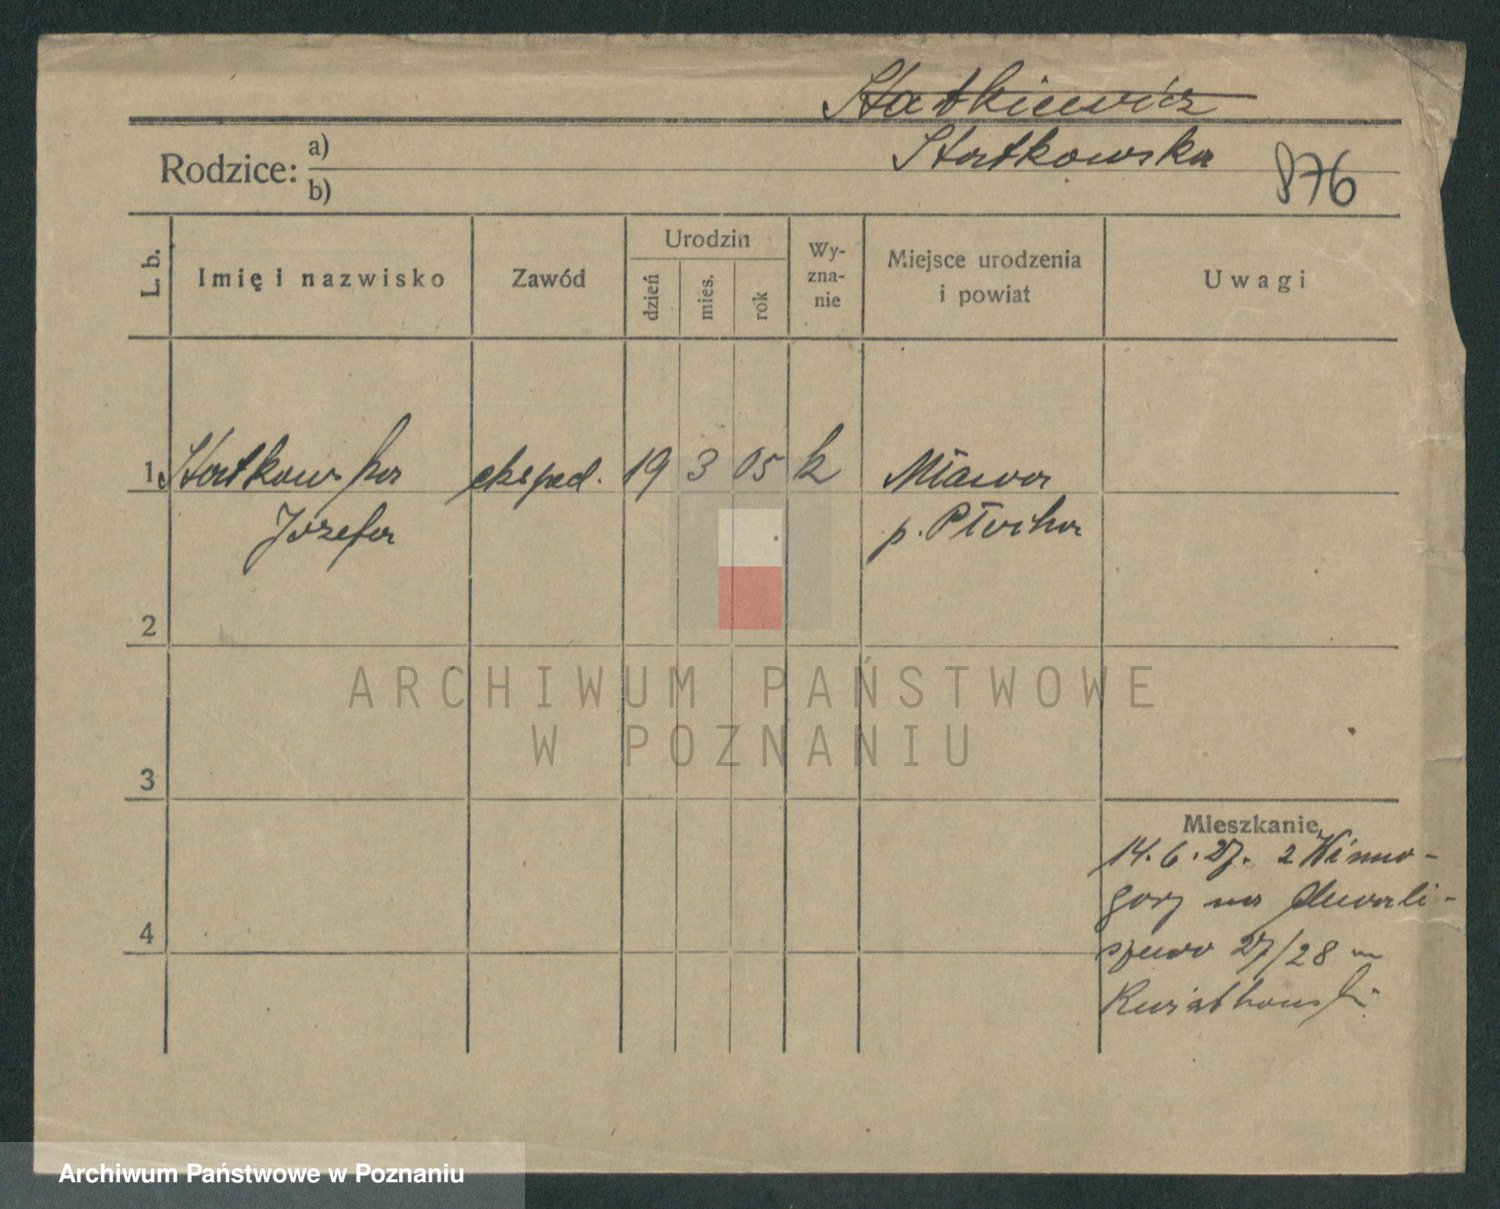 Statkiewicz
Statkowska
876
Rodzice: a)
b)
L. b.
Imię i nazwisko
Zawód
Urodzin
dzień
mies.
rok
Wy-
zna-
nie
Miejsce urodzenia
i powiat
Uwagi
1 Statkowska eksped. 19 3 05 k Mława
Józefa p. Płocka
2
ARCHIWUM PAŃSTWOWE
W POZNANIU
3
Mieszkanie
14. 6. 27. z Winno-
gory na Chwali-
szewo 27/28 u
4
Kwiatkowski
Archiwum Państwowe w Poznaniu